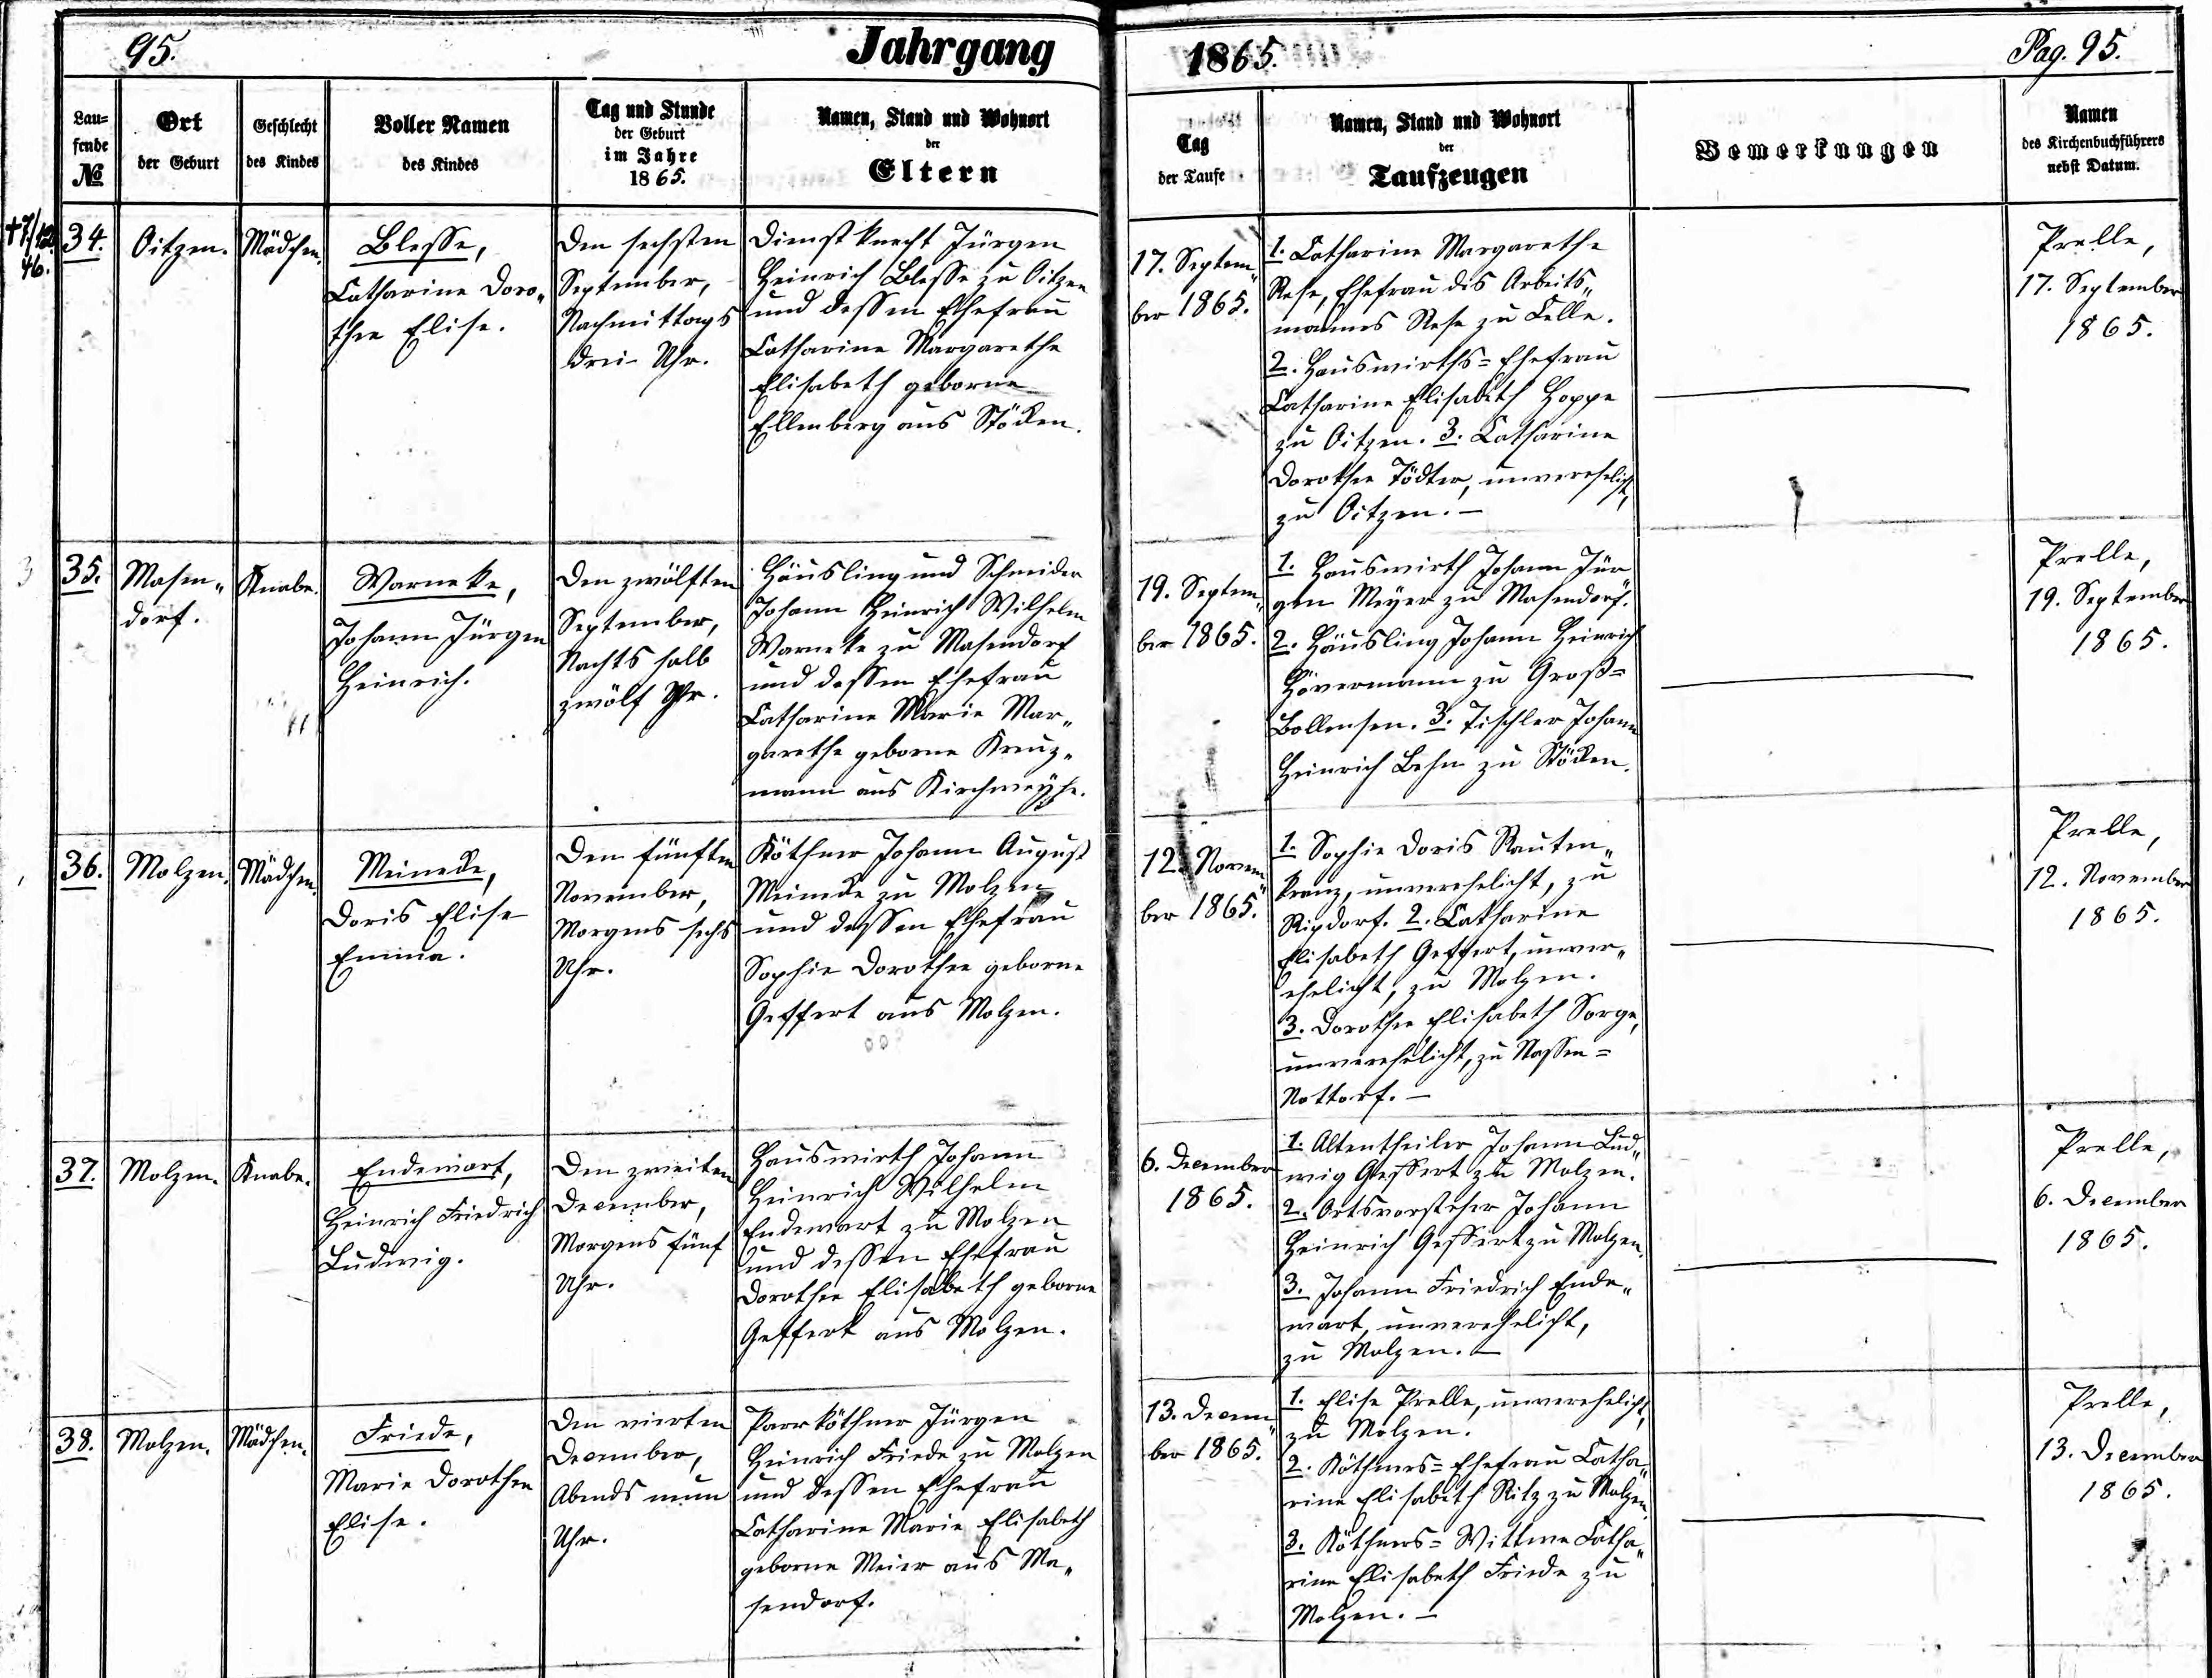 95.
Jahrgang
1865.
Pag. 95.
Lau=
fende
№
Ort
der Geburt
Geschlecht
des Kindes
Voller Namen
des Kindes
Tag und Stunde
der Geburt
im Jahre
1865.
Namen, Stand und Wohnort
der
Eltern
Tag
der Taufe
Namen, Stand und Wohnort
der
Taufzeugen
Bemerkungen
Namen
des Kirchenbuchführers
nebst Datum.
† 7/12.
46.
34.
Oitzen.
Mädchen.
Blesse,
Catharine Doro„
thee Elise.
Den sechsten
September,
Nachmittags
drei Uhr.
Dienstknecht Jürgen
Heinrich Blesse zu Oitzen
und dessen Ehefrau
Catharine Margarethe
Elisabeth geborne
Ellenberg aus Stöcken.
17. Septem„
ber 1865.
1. Catharine Margarethe
Rese, Ehefrau des Arbeits„
mannes Rese zu Celle.
2. Hauswirths=Ehefrau
Catharine Elisabeth Hoppe
zu Oitzen. 3. Catharine
Dorothee Tödter, unverehelicht,
zu Oitzen. —
Prelle,
17. September
1865.
3
35.
Masen„
dorf.
Knabe.
Warneke,
Johann Jürgen
Heinrich.
Den zwölften
September,
Nachts halb
zwölf Uhr.
Häusling und Schneider
Johann Heinrich Wilhelm
Warneke zu Masendorf
und dessen Ehefrau
Catharine Marie Mar„
garethe geborne Kreuz„
mann aus Kirchweyhe.
19. Septem„
ber 1865.
1. Hauswirth Johann Jür„
gen Meyer zu Masendorf.
2. Häusling Johann Heinrich
Hövermann zu Groß=
Bollensen. 3. Tischler Johann
Heinrich Behn zu Stöcken.
Prelle,
19. September
1865.
36.
Molzen.
Mädchen.
Meinecke,
Doris Elise
Emma.
Den fünften
November,
Morgens sechs
Uhr.
Köthner Johann August
Meinecke zu Molzen
und dessen Ehefrau
Sophie Dorothee geborne
Geffert aus Molzen.
12. Novem„
ber 1865.
1. Sophie Doris Rauten„
kranz, unverehelicht, zu
Ripdorf. 2. Catharine
Elisabeth Geffert, unver„
ehelicht, zu Molzen.
3. Dorothee Elisabeth Sorge,
unverehelicht, zu Nassen=
Nottorf. —
Prelle,
12. November
1865.
37.
Molzen.
Knabe.
Endewart,
Heinrich Friedrich
Ludwig.
Den zweiten
December,
Morgens fünf
Uhr.
Hauswirth Johann
Heinrich Wilhelm
Endewart zu Molzen
und dessen Ehefrau
Dorothee Elisabeth geborne
Geffert aus Molzen.
6. December
1865.
1. Altentheiler Johann Lud„
wig Geffert zu Molzen.
2. Ortsvorsteher Johann
Heinrich Geffert zu Molzen.
3. Johann Friedrich Ende„
wart, unverehelicht,
zu Molzen. —
Prelle,
6. December
1865.
38.
Molzen.
Mädchen.
Friede,
Marie Dorothee
Elise.
Den vierten
December,
Abends neun
Uhr.
Parrköthner Jürgen
Heinrich Friede zu Molzen
und dessen Ehefrau
Catharine Marie Elisabeth
geborne Meier aus Ma„
sendorf.
13. Decem„
ber 1865.
1. Elise Prelle, unverehelicht,
zu Molzen.
2. Köthners=Ehefrau Catha„
rine Elisabeth Ritz zu Molzen.
3. Köthners=Wittwe Catha„
rine Elisabeth Friede zu
Molzen. —
Prelle,
13. December
1865.